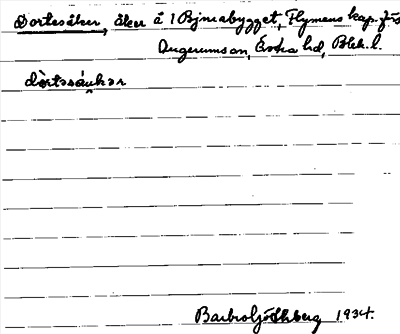 Dortesåker, åker å 1 Björstabygget, Flymens kap. förs
Augerums sn, Östra hd, Blek. l.
dòrtəsåukər
Barbro Söderberg 1934.